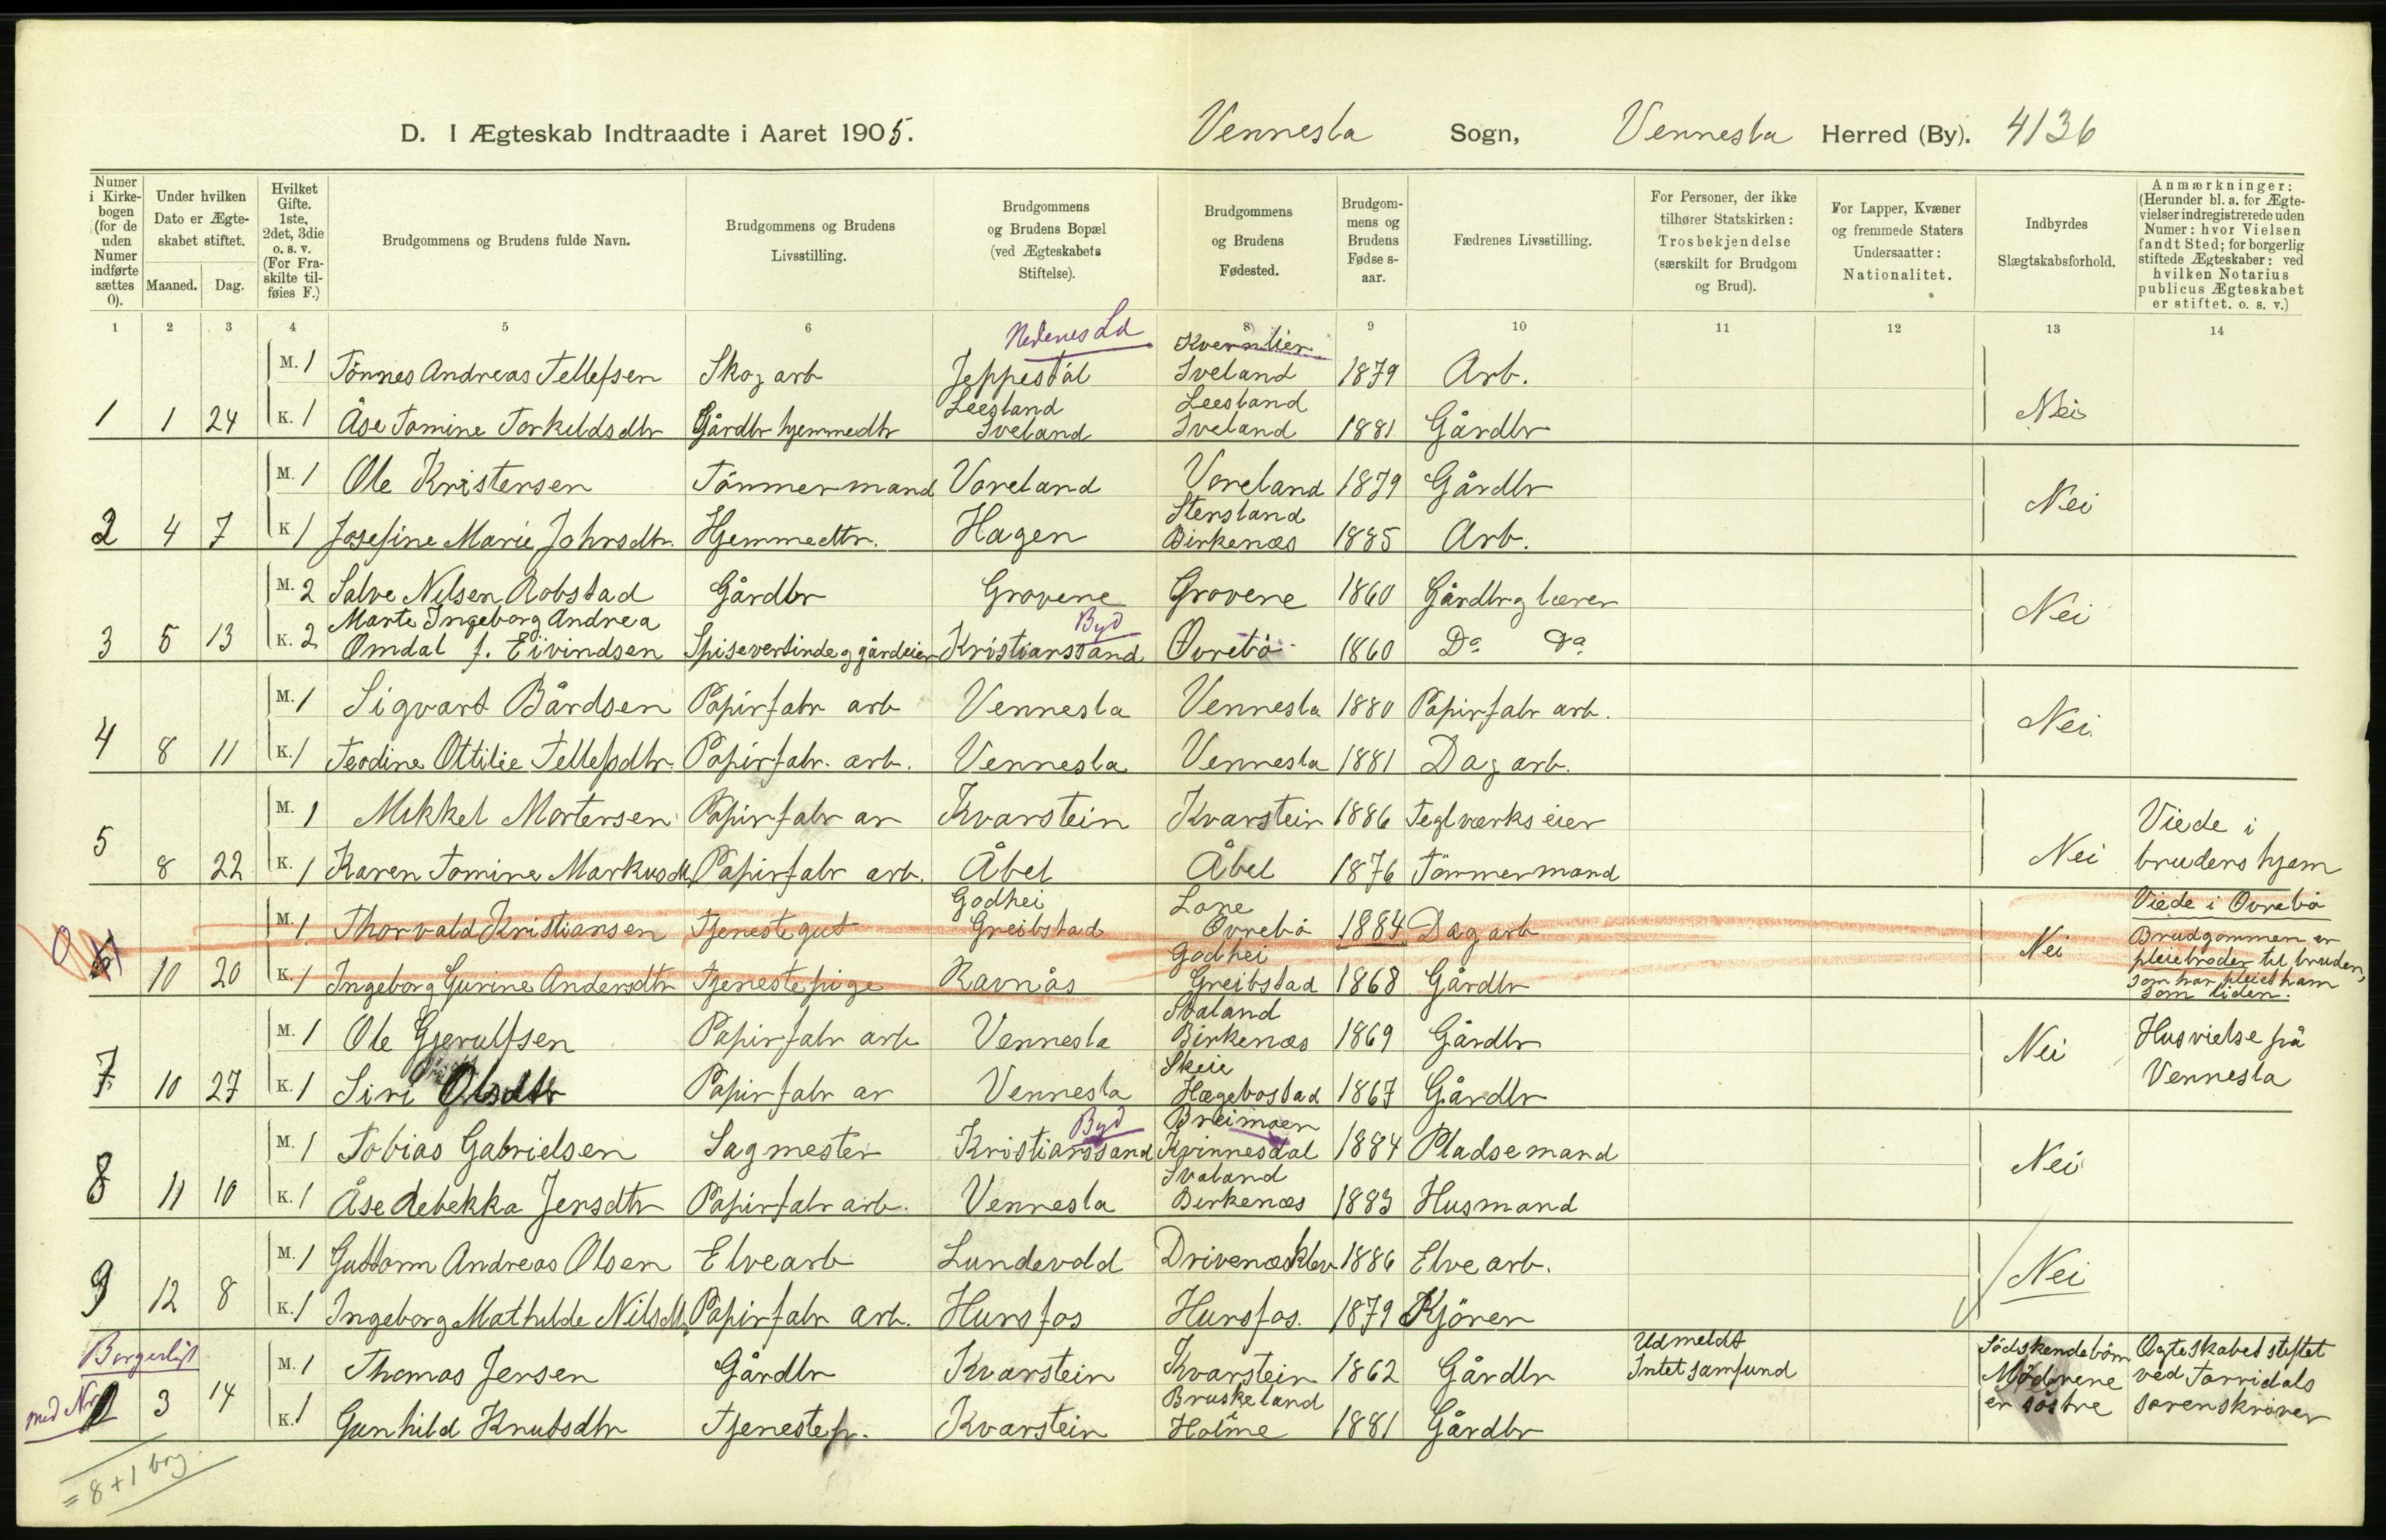 D. I Ægteskab Indtraadte i Aaret 1905. Vennesla Sogn, Vennesla Herred (By). 4136
Numer i Kirke-bogen (for de uden Numer indførte sættes 0).
Under hvilken Dato er Ægte-skabet stiftet.
Maaned. Dag.
Hvilket Gifte. 1ste, 2det, 3die o. s. v. (For Fra-skilte til-føies F.)
Brudgommens og Brudens fulde Navn.
Brudgommens og Brudens Livsstilling.
Brudgommens og Brudens Bopæl (ved Ægteskabets Stiftelse).
Brudgommens og Brudens Fødested.
Brudgom-mens og Brudens Fødse s-aar.
Fædrenes Livsstilling.
For Personer, der ikke tilhører Statskirken: Trosbekjendelse (særskilt for Brudgom og Brud).
For Lapper, Kvæner og fremmede Staters Undersaatter: Nationalitet.
Indbyrdes Slægtskabsforhold.
Anmærkninger: (Herunder bl. a. for Ægte-vielser indregistrerede uden Numer: hvor Vielsen fandt Sted; for borgerlig stiftede Ægteskaber: ved hvilken Notarius publicus Ægteskabet er stiftet. o. s. v.)
1 2 3 4 5 6 7 8 9 10 11 12 13 14
Nedenes Ld Kvernlien
M. 1 Tönnes Andreas Tellefsen Skog arb Jeppestöl Iveland 1879 Arb.
Leesland Leesland
1 1 24 K. 1 Åse Tomine Torkeldsdtr Gårdbr hjemmedtr Iveland Iveland 1881 Gårdbr Nei
M. 1 Ole Kristensen Tömmermand Voreland Voreland 1879 Gårdbr
Stensland
2 4 7 K 1 Josefine Marie Johnsdtr. Hjemmedtr. Hagen Birkenæs 1885 Arb. Nei
M. 2 Salve Nilsen Robstad Gårdbr Grovene Grovene 1860 Gårdbr og lærer
Marte Ingeborg Andrea Byd
3 5 13 K. 2 Omdal f. Eivindsen Spisevertinde og gårdeier Kristianssand Øvrebö 1860 Do Do Nei
M. 1 Sigvart Bårdsen Papirfabr arb Vennesla Vennesla 1880 Papirfabr arb.
4 8 11 K. 1 Teodine Ottilie Tellefsdtr. Papirfabr. arb. Vennesla Vennesla 1881 Dagarb. Nei
M. 1 Mikkel Mortensen Papirfabr ar Kvarstein Kvarstein 1886 Teglverkseier Viede i
5 8 22 K. 1 Karen Tomine Markusdtr Papirfabr arb. Åbel Åbel 1876 Tömmermand Nei brudens hjem
Godhei Lone Viede i Øvrebö
0 M. 1 Thorvald Kristiansen Tjenestegut Greibstad Øvrebö 1884 Dagarb Brudgommen er
Godhei pleiebroder til bruden,
10 20 K. 1 Ingeborg Gurine Andersdtr Tjenestepige Ravnås Greibstad 1868 Gårdbr Nei som har pleiet ham
som liden.
Svaland
M. 1 Ole Gjerulfsen Papirfabr arb Vennesla Birkenæs 1869 Gårdbr Husvielse på
Skeie
7 10 27 K. 1 Siri Olsdtr Papirfabr ar Vennesla Hægebostad 1867 Gårdbr Nei Vennesla
Byd Breimoen
M. 1 Tobias Gabrielsen Sagmester Kristianssand Kvinnesdal 1884 Pladsemand
Svaland
8 11 10 K. 1 Åse Rebekka Jensdtr Papirfabr arb. Vennesla Birkenæs 1883 Husmand Nei
M. 1 Guttorm Andreas Olsen Elvearb Lundevold Drivenesklev 1886 Elvearb.
9 12 8 K. 1 Ingeborg Mathilde Nilsdtr Papirfabr arb. Hunsfos Hunsfos. 1879 Kjörer Nei
Borgerligt Udmeldt Södskendebörn Ægteskabet stiftet
M. 1 Thomas Jensen Gårdbr Kvarstein Kvarstein 1862 Gårdbr Intet samfund Mödrene ved Torridals
Bruskeland
med Nr 1 3 14 K. 1 Gunhild Knutsdtr Tjenestep. Kvarstein Holme 1881 Gårdbr er söstre sorenskriver
= 8 + 1 borg.